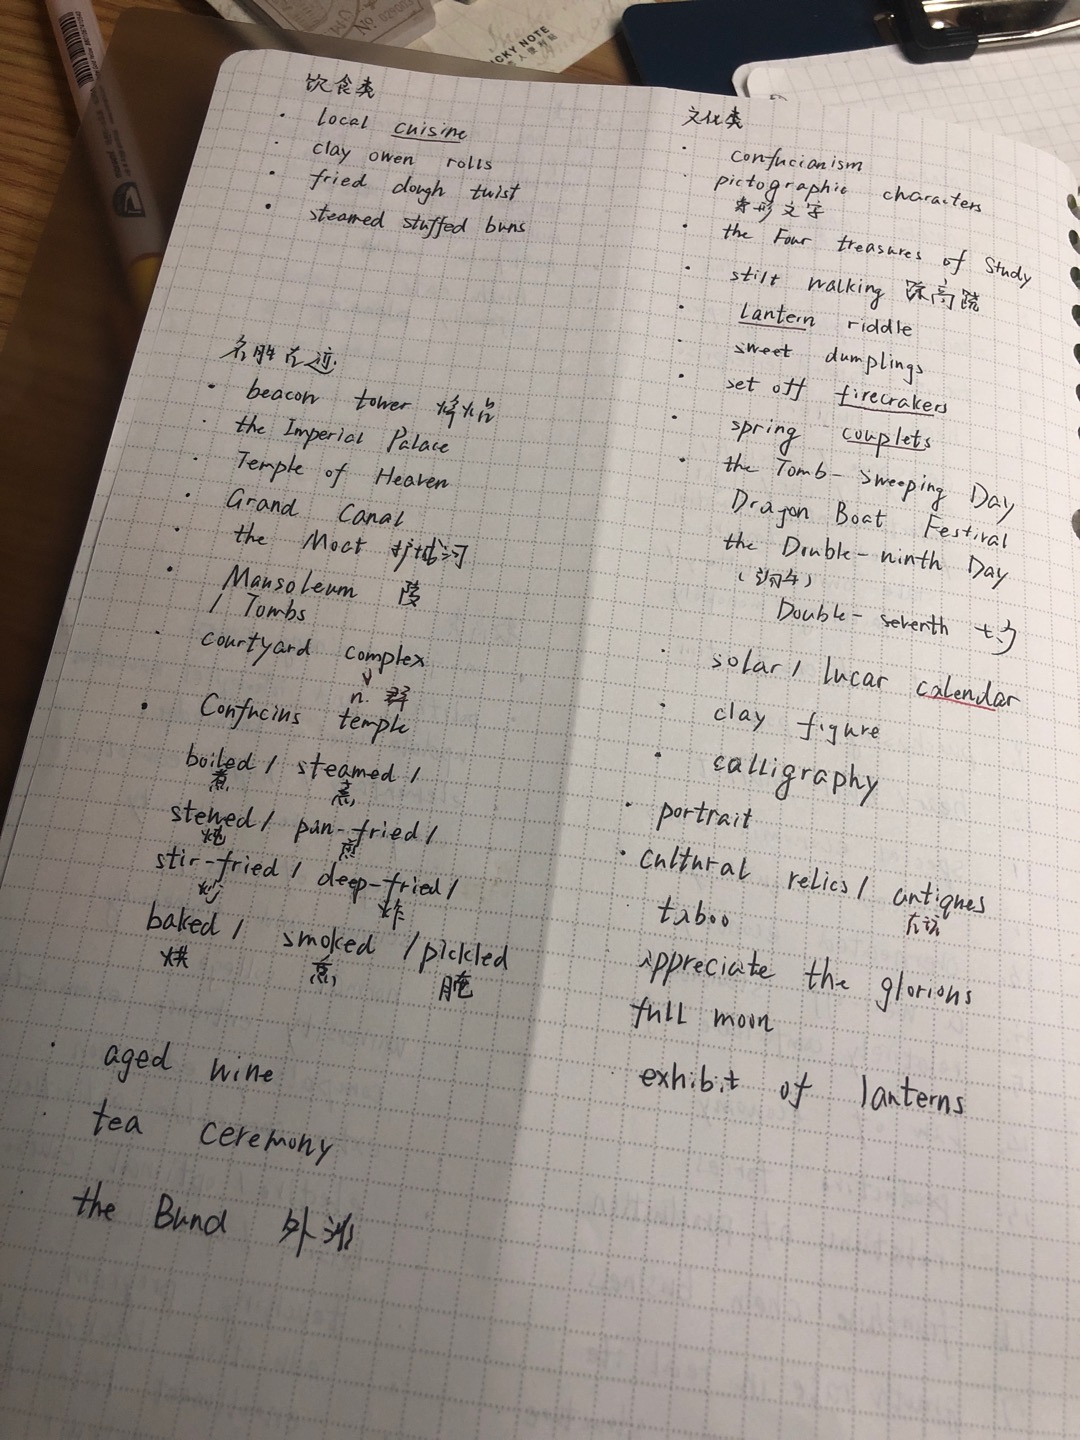 饮食类
· local cuisine
· clay owen rolls
· fried dough twist
· steamed stuffed buns
名胜古迹
· beacon tower 烽火台
· the Imperial Palace
· Temple of Heaven
· Grand Canal
· the Moat 护城河
· Mausoleum 陵
/ Tombs
· courtyard complex
n. 群
· Confucius temple
boiled / steamed /
煮 蒸
stewed / pan-fried /
炖 煎
stir-fried / deep-fried /
炒 炸
baked / smoked / pickled
烘 熏 腌
· aged wine
· tea ceremony
the Bund 外滩
文化类
· confucianism
· pictographic characters
象形文字
· the Four treasures of Study
· stilt walking 踩高跷
· lantern riddle
· sweet dumplings
· set off firecrakers
· spring couplets
· the Tomb-sweeping Day
Dragon Boat Festival
the Double-ninth Day
Double-seventh 七夕
· solar / lucar calendar
· clay figure
· calligraphy
· portrait
· cultural relics / antiques
古玩
taboo
appreciate the glorious
full moon
exhibit of lanterns
STICKY NOTE